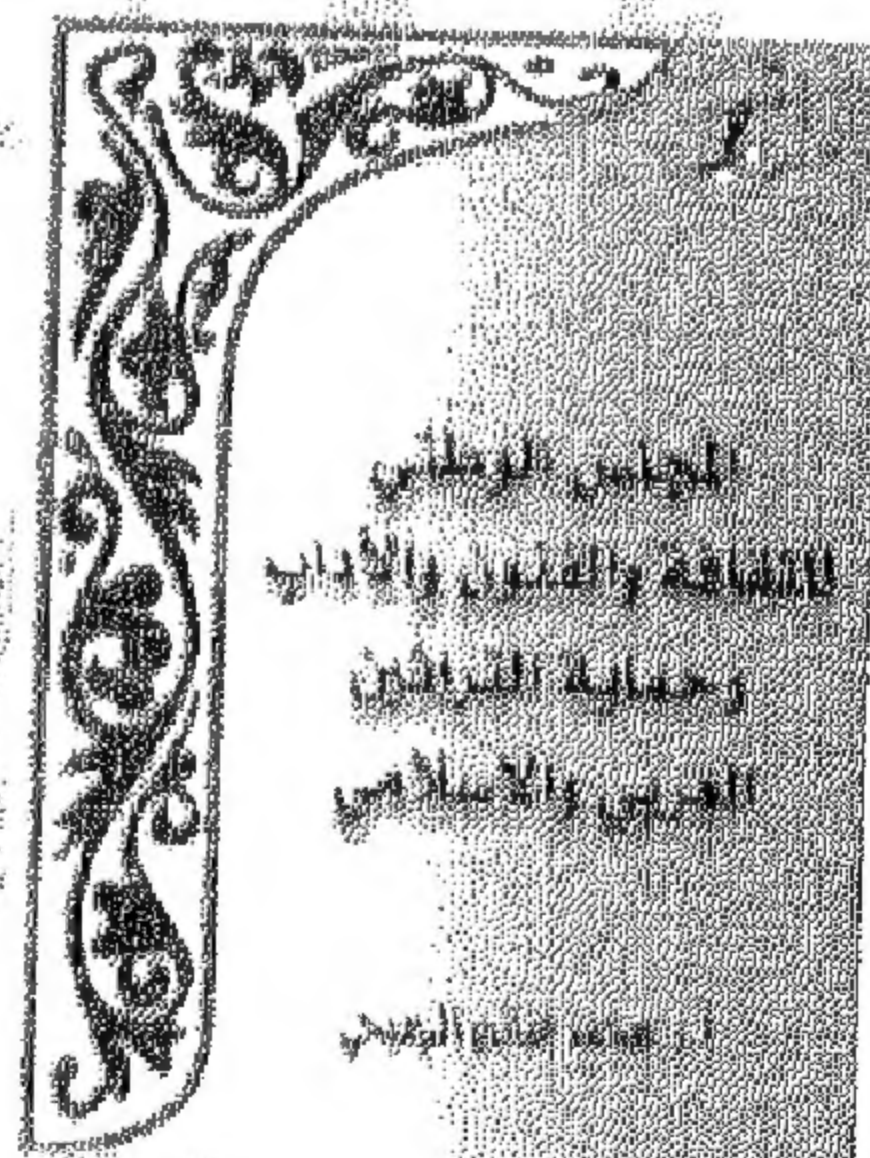 المجلس الوطني
للثقافة والفنون والآداب
وحماية التراثين
العربي والإسلامي